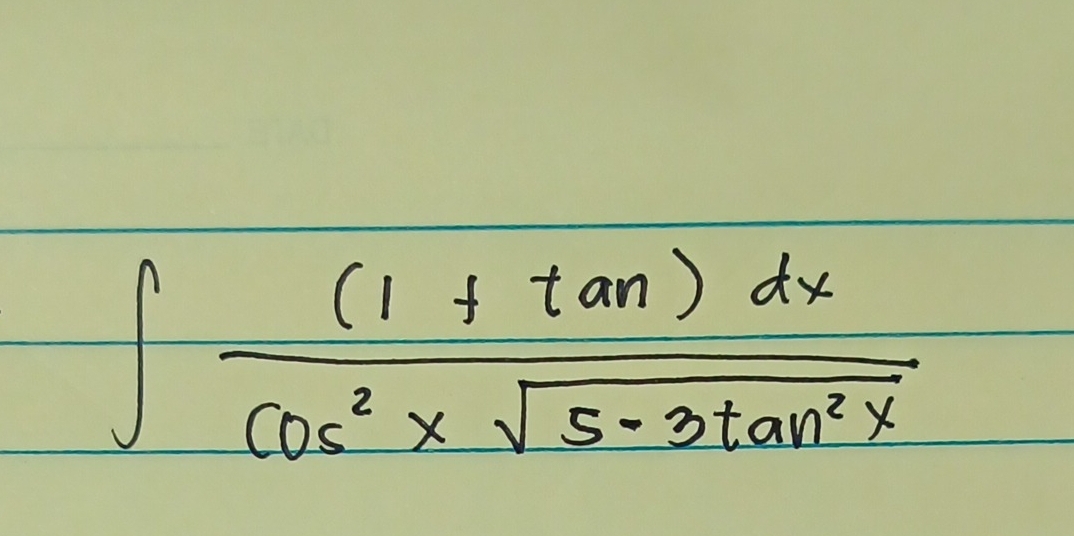 ∫ (1 + tan) dx
cos² x √5-3tan² x